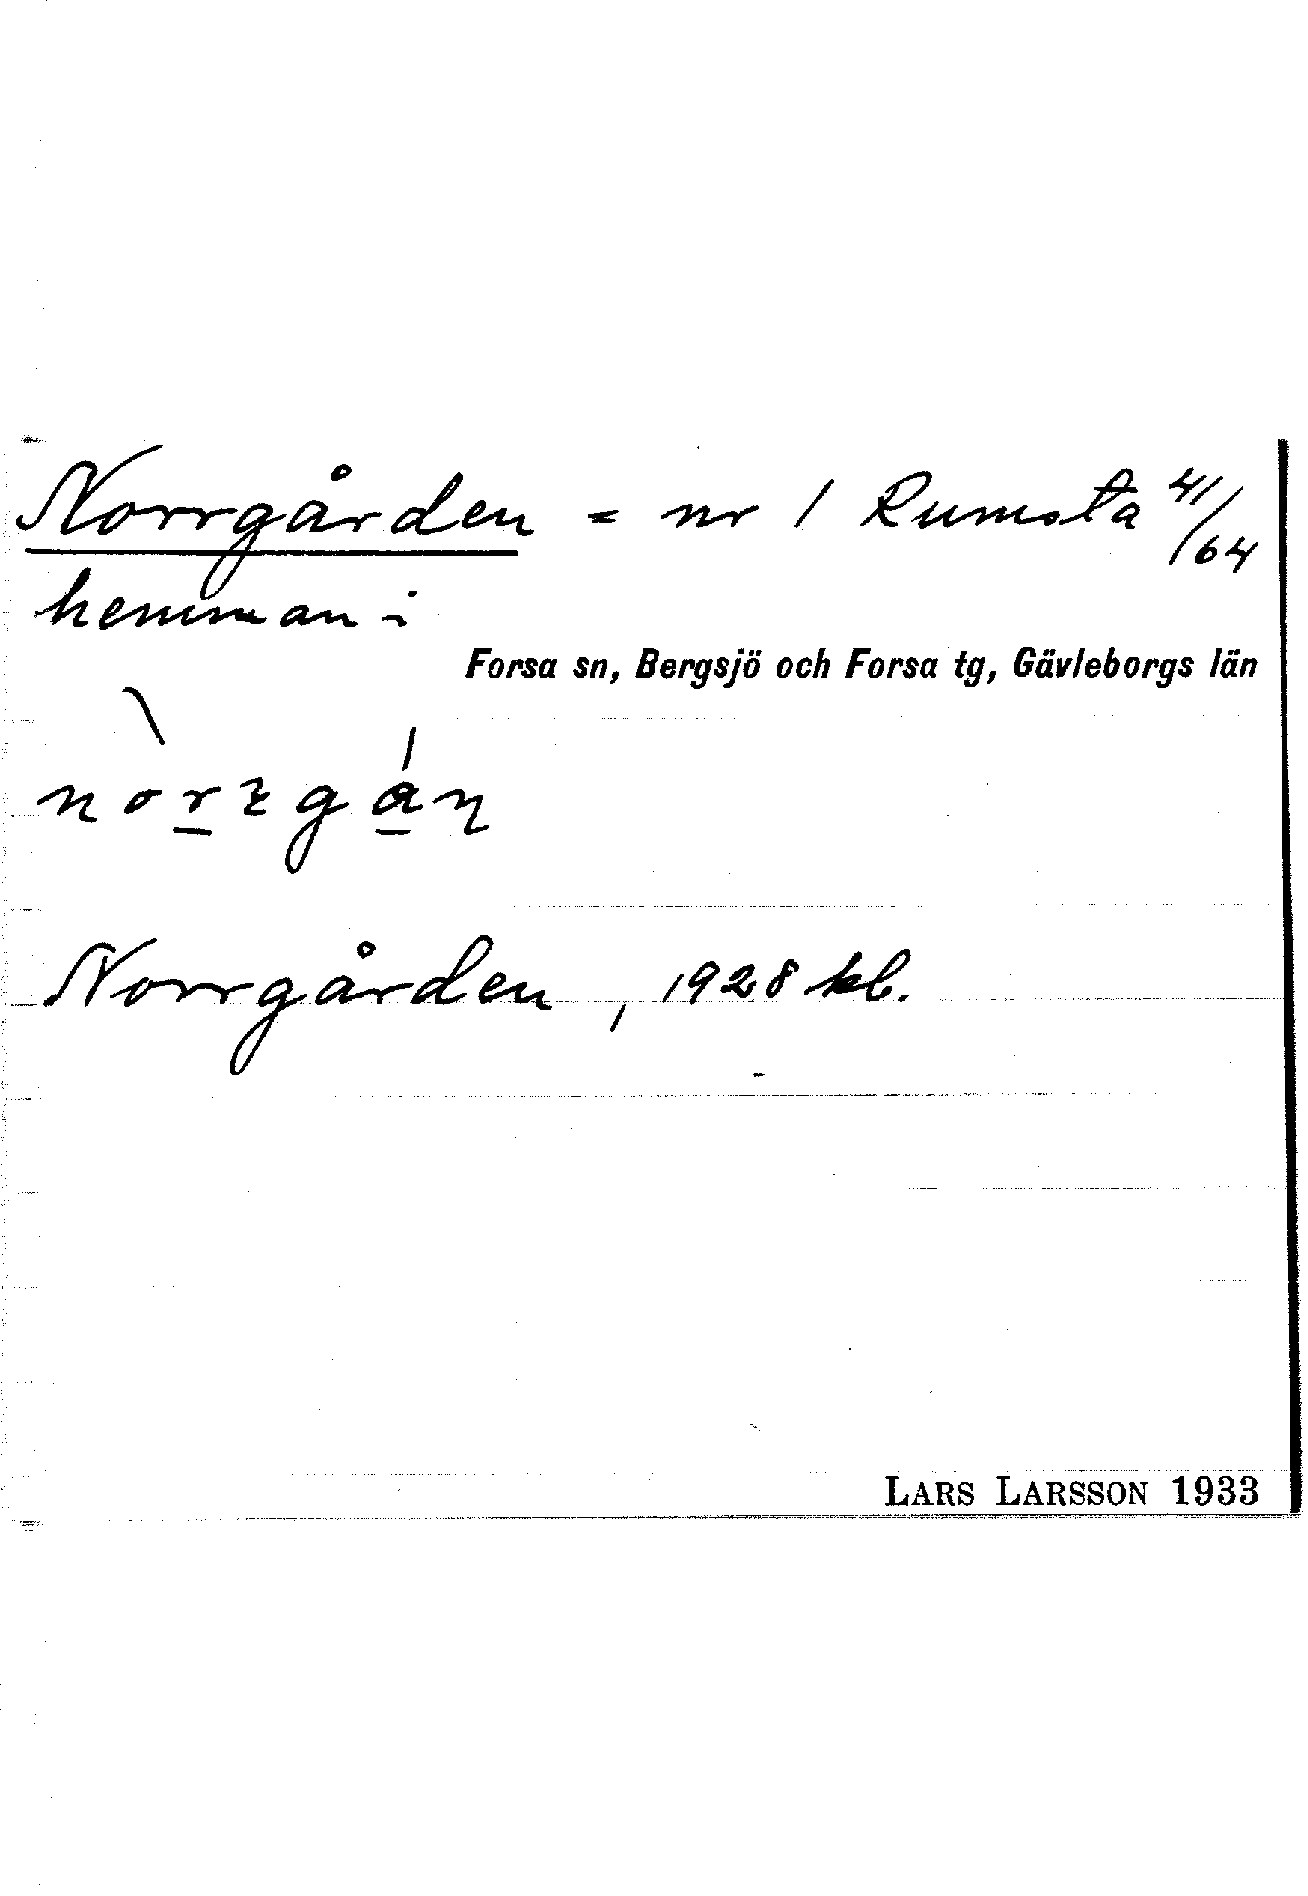 Norrgården = nr 1 Rumsta 41/64
hemman i
Forsa sn, Bergsjö och Forsa tg, Gävleborgs län
Norrgården, 1928 kb.
LARS LARSSON 1933